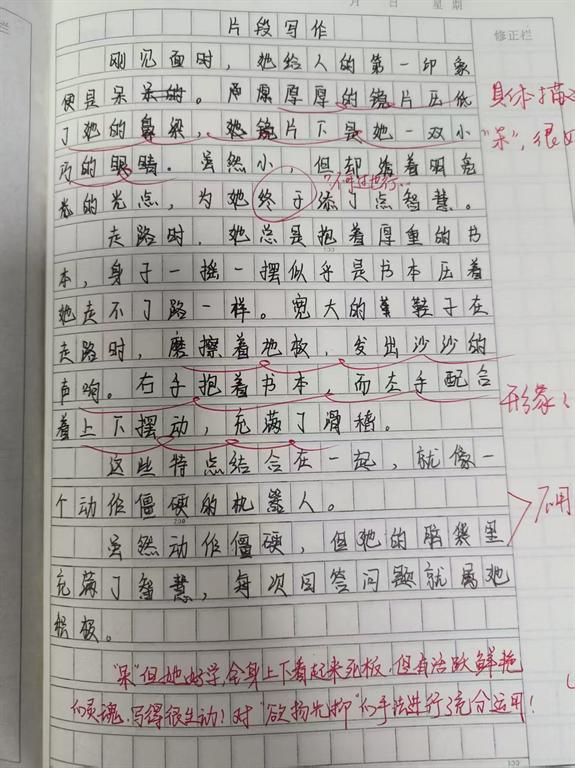 月 日 星期
片段写作
修正栏
刚见面时，她给人的第一印象
便是呆呆的。厚厚的镜片压低
了她的鼻梁，她镜片下是她一双小
巧的眼睛。虽然小，但却有着明亮
的光点，为她终于添了点智慧。
走路时，她总是抱着厚重的书
本，身子一摇一摆似乎是书本压着
她走不了路一样。宽大的鞋子在
走路时，磨擦着地板，发出沙沙的
声响。右手抱着书本，而左手配合
着上下摆动，充满了滑稽。
这些特点结合在一起，就像一
个动作僵硬的机器人。
虽然动作僵硬，但她的脑袋里
充满了智慧，每次回答问题就属她
积极。
具体描
"呆"，很
形象
不用
"呆"但她好学，全身上下看起来死板，但有活跃鲜艳
的灵魂，写得很生动！对"欲扬先抑"的手法进行充分运用！
100
200
330